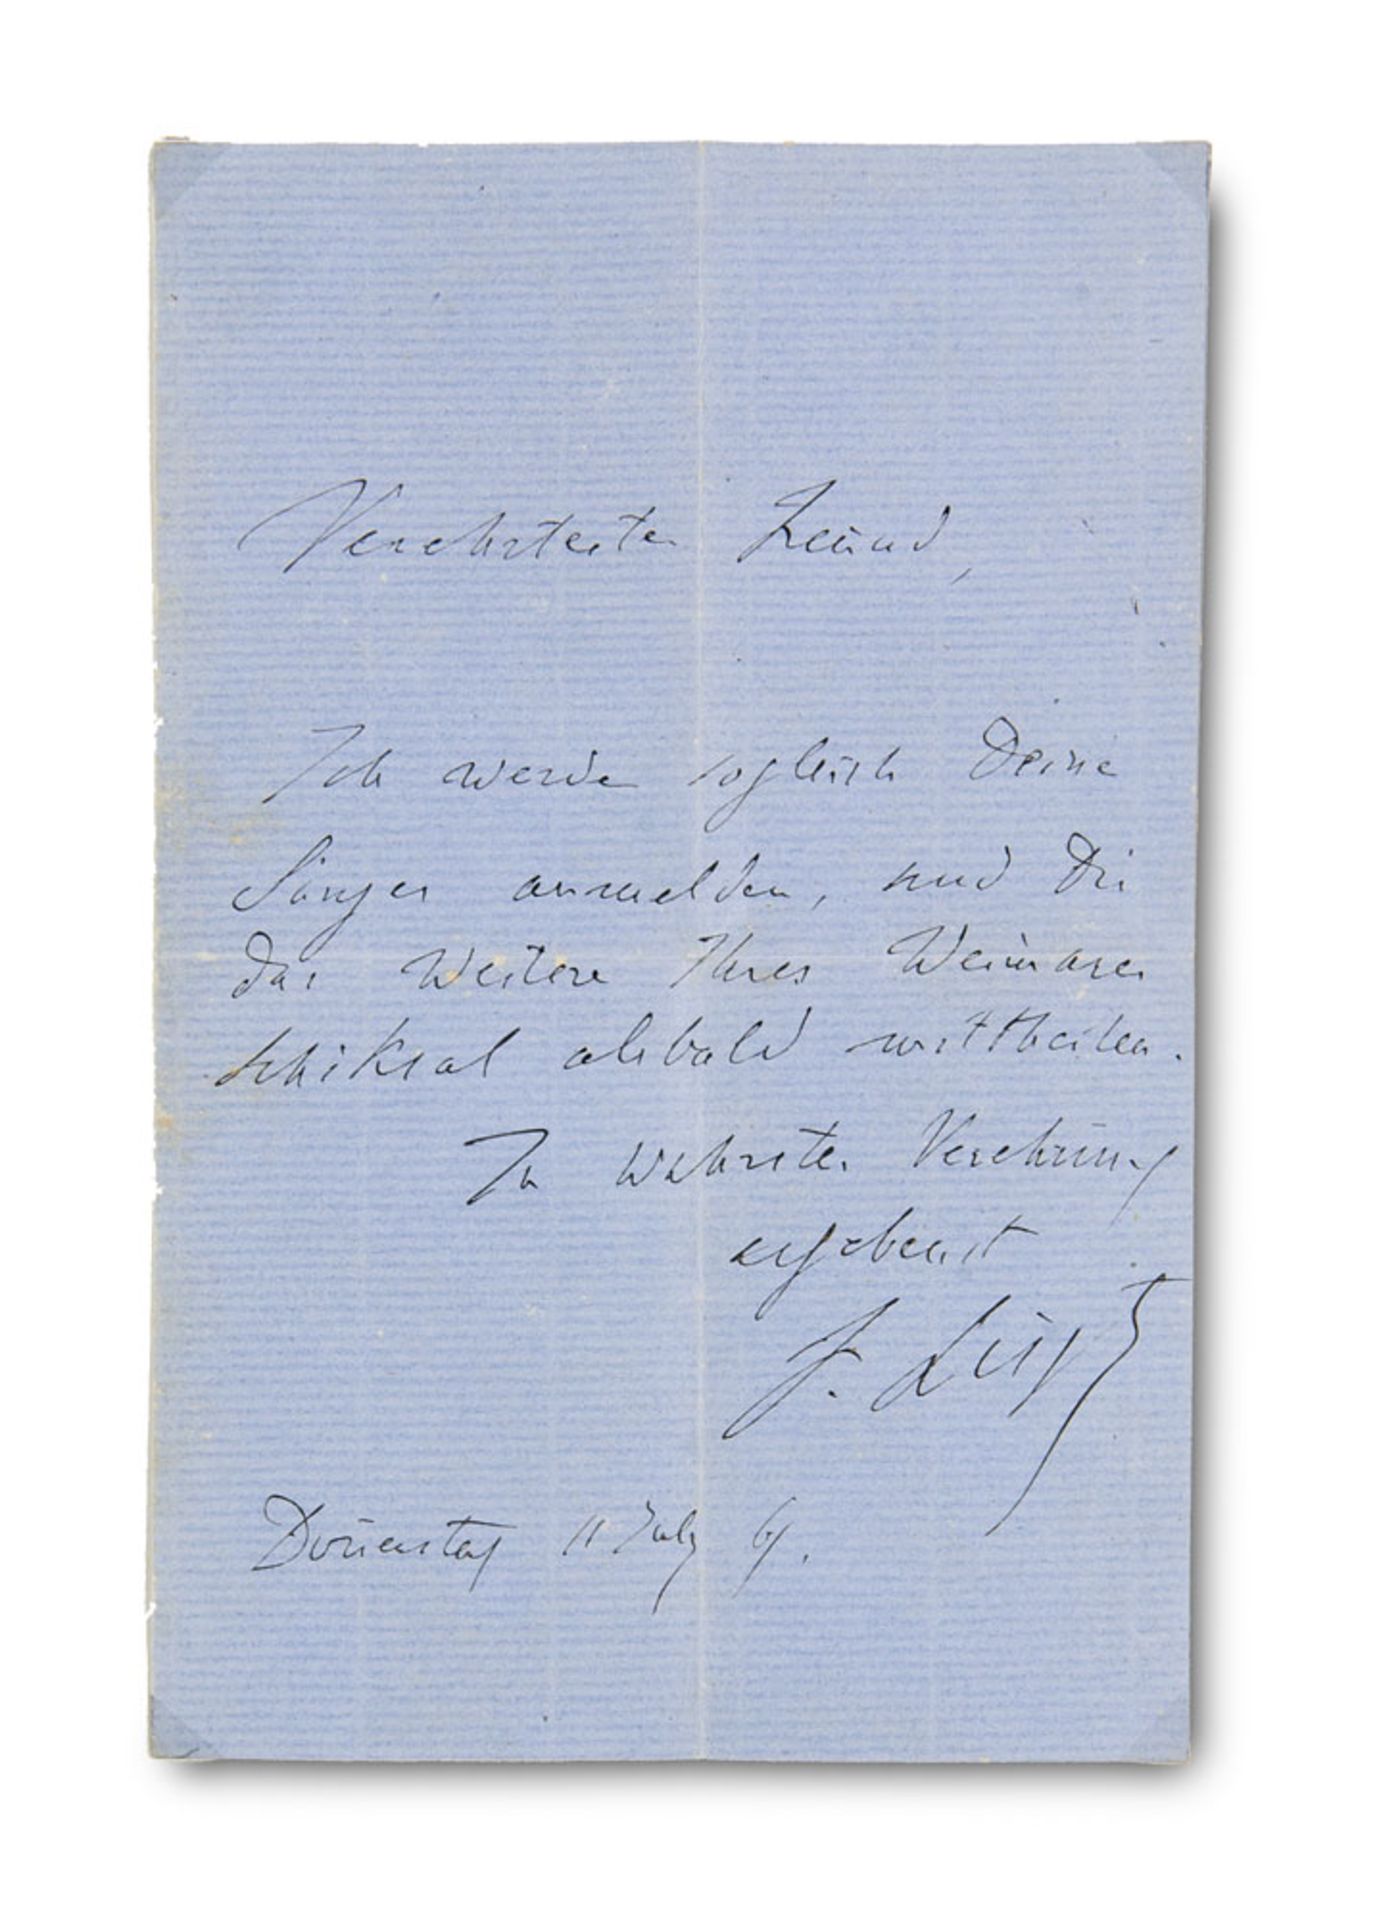 Verehrtester Freund,
Ich werde sogleich Deine
Sänger anmelden, und Dir
das Weitere Ihres Weimarer
Schiksal alsbald mittheilen.
In wahrster Verehrung
ergebenst
F. Liszt
Donnerstag 11 July 61.